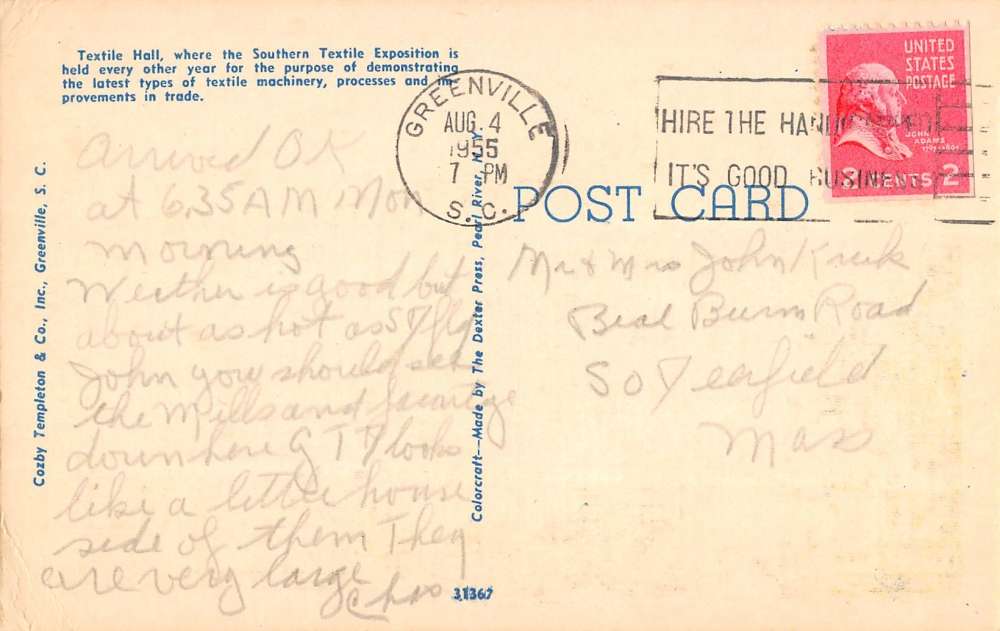 Textile Hall, where the Southern Textile Exposition is
held every other year for the purpose of demonstrating
the latest types of textile machinery, processes and im-
provements in trade.
Cozby Templeton & Co., Inc., Greenville, S. C.
Arrived OK
at 6,35 AM Mon
morning
Weather is good but
about as hot as
John you should see
the Mills and
down here G T D looks
like a little house
side of them They
are very large
Chas
Colorcraft—Made by The Dexter Press, Pearl River, N. Y.
31367
GREENVILLE
AUG. 4
1955
7 PM
S. C.
HIRE THE HANDICAPPED
IT'S GOOD BUSINESS
UNITED
STATES
POSTAGE
JOHN
ADAMS
2 CENTS 2
POST CARD
Mr & Mrs John
Road
So Deerfield
Mass